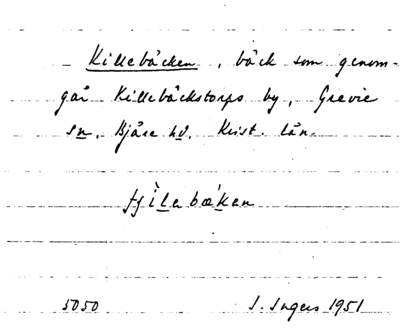 Killebäcken, bäck som genom-
går Killebäckstorps by, Grevie
sn, Bjäre hd. Krist. län.
5050 I. Ingers 1951